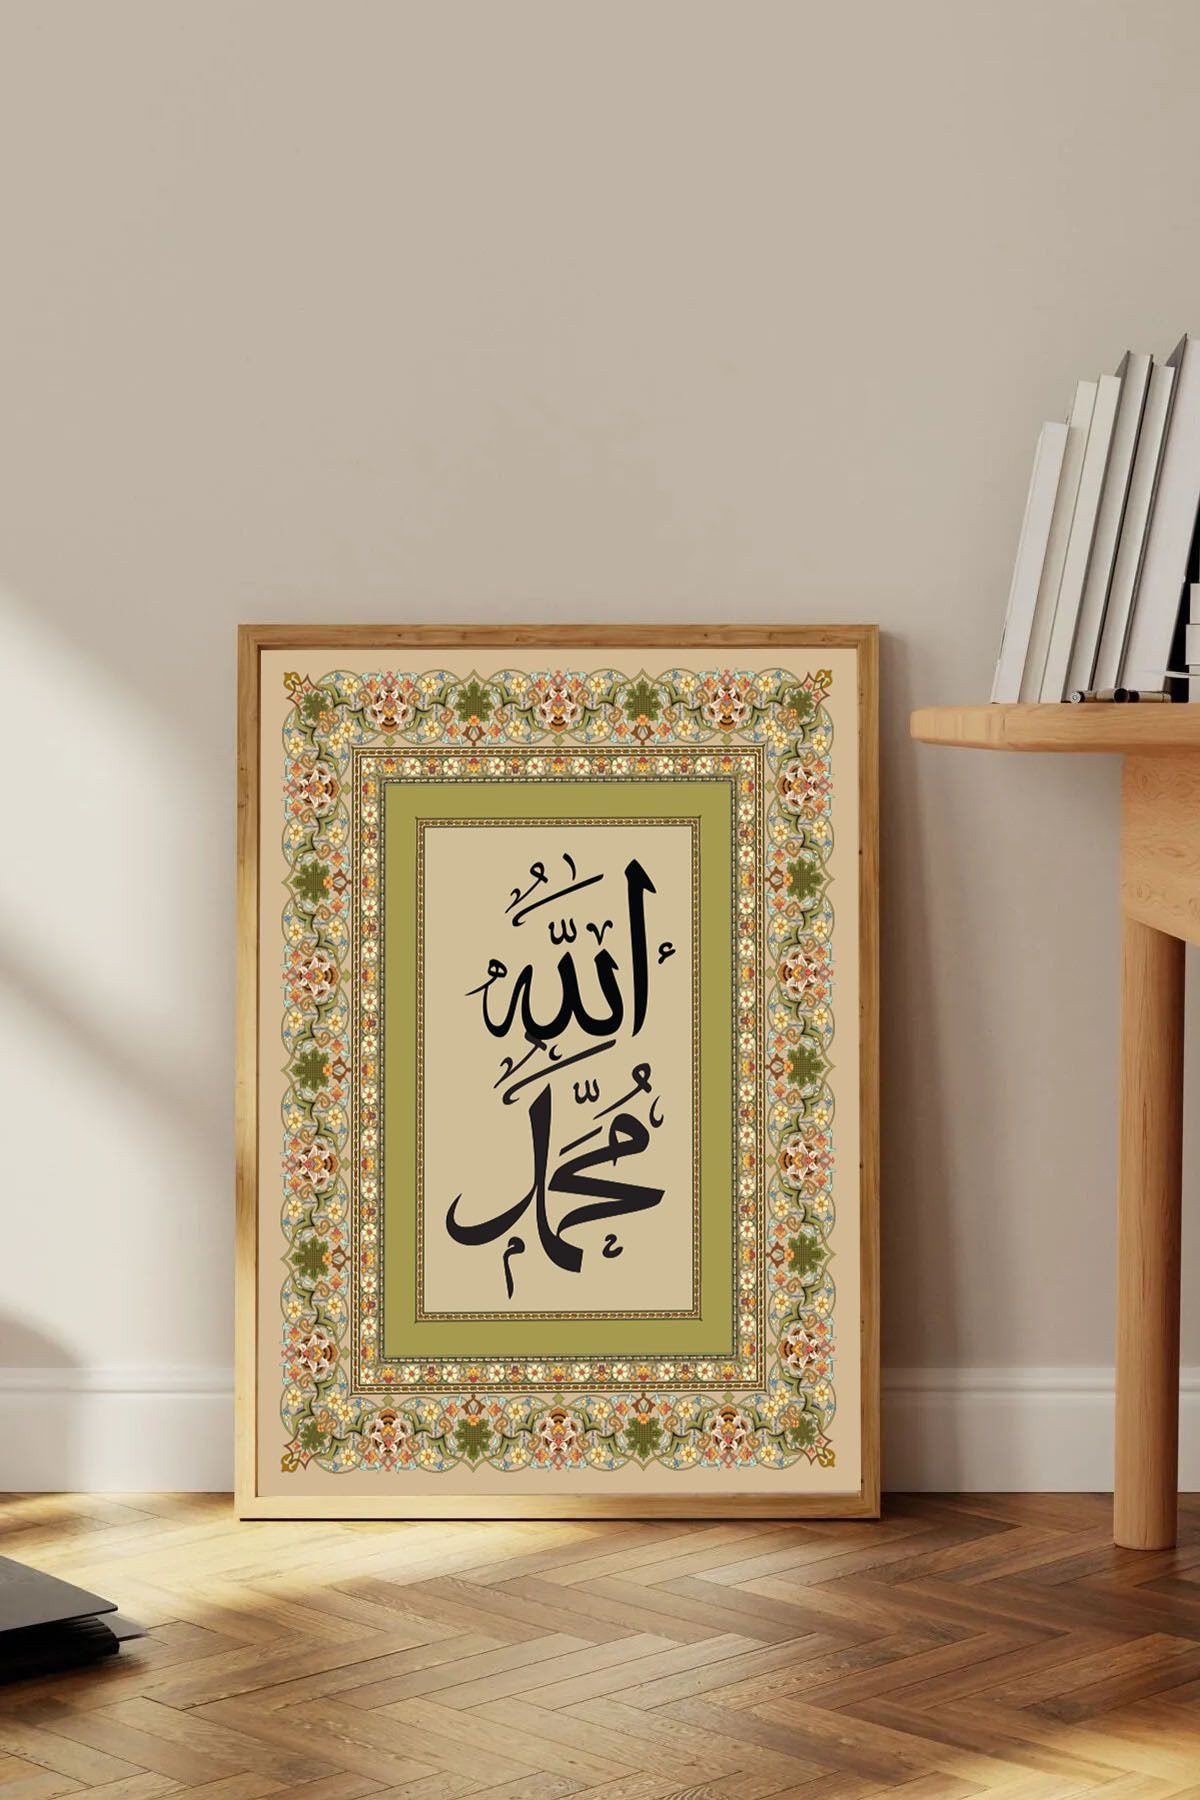 أللّٰهُ
مُحَمَّد